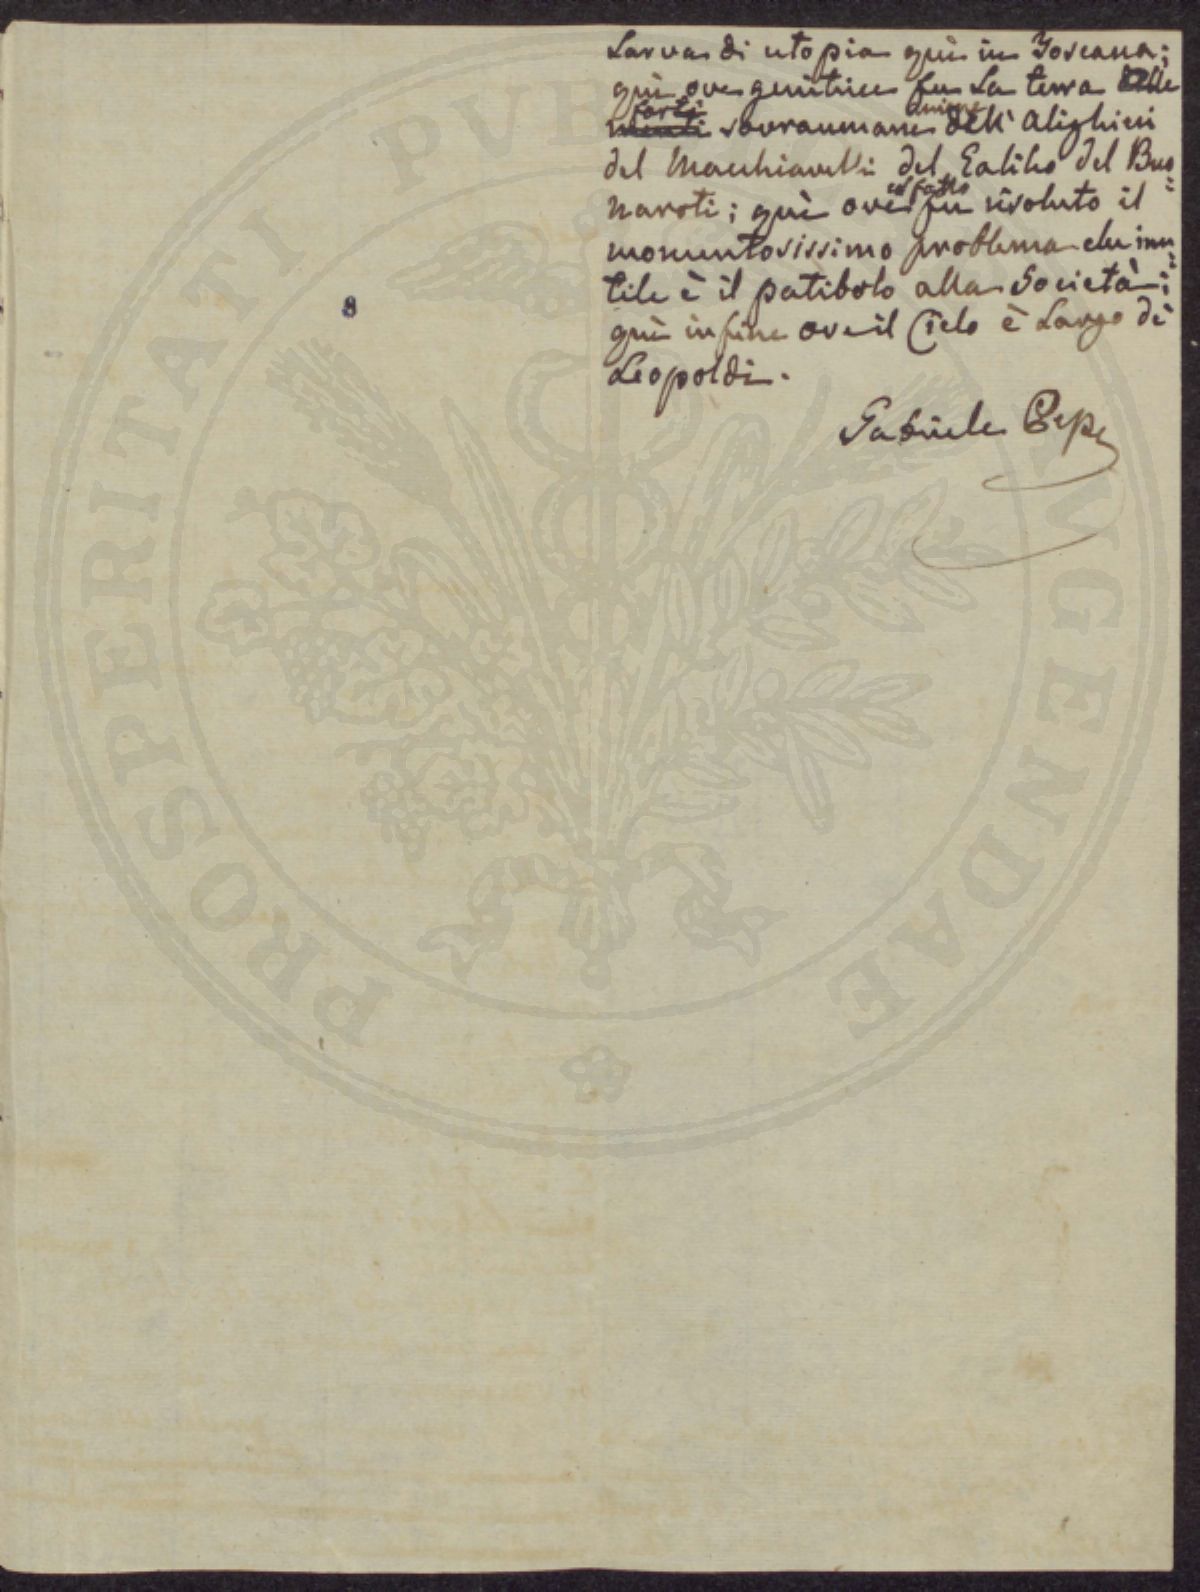 Larva di utopia quì in Toscana;
quì ove genitrice fu la terra delle
forti anime
menti sovraumane dell'Alighieri
del Macchiavelli del Galileo del Buo=
col fatto
naroti; quì ove fu risoluto il
momentosissimo problema che inu=
tile è il patibolo alla Società;
quì infine ove il Cielo è largo di
Leopoldi.
Gabriele Pepe
8
PROSPERITATI PVB AVGENDAE